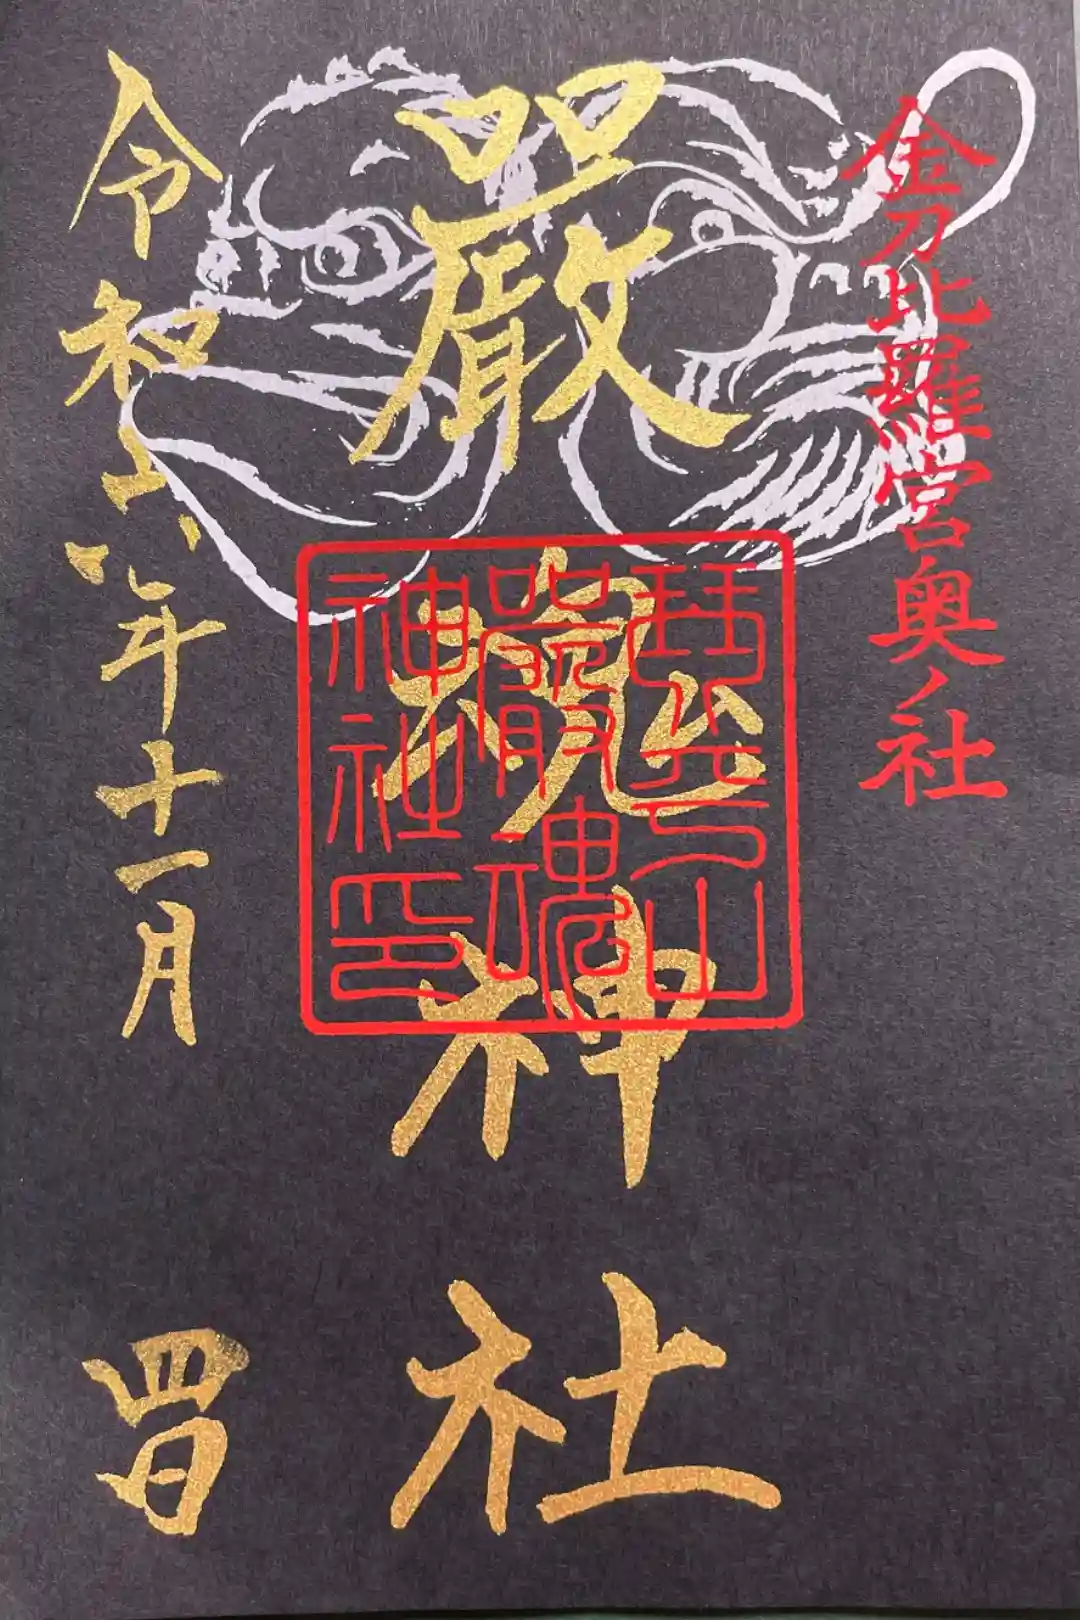 金刀比羅宮奥ノ社
嚴魂神社
琴平山
嚴魂
神社印
令和六年十一月四日